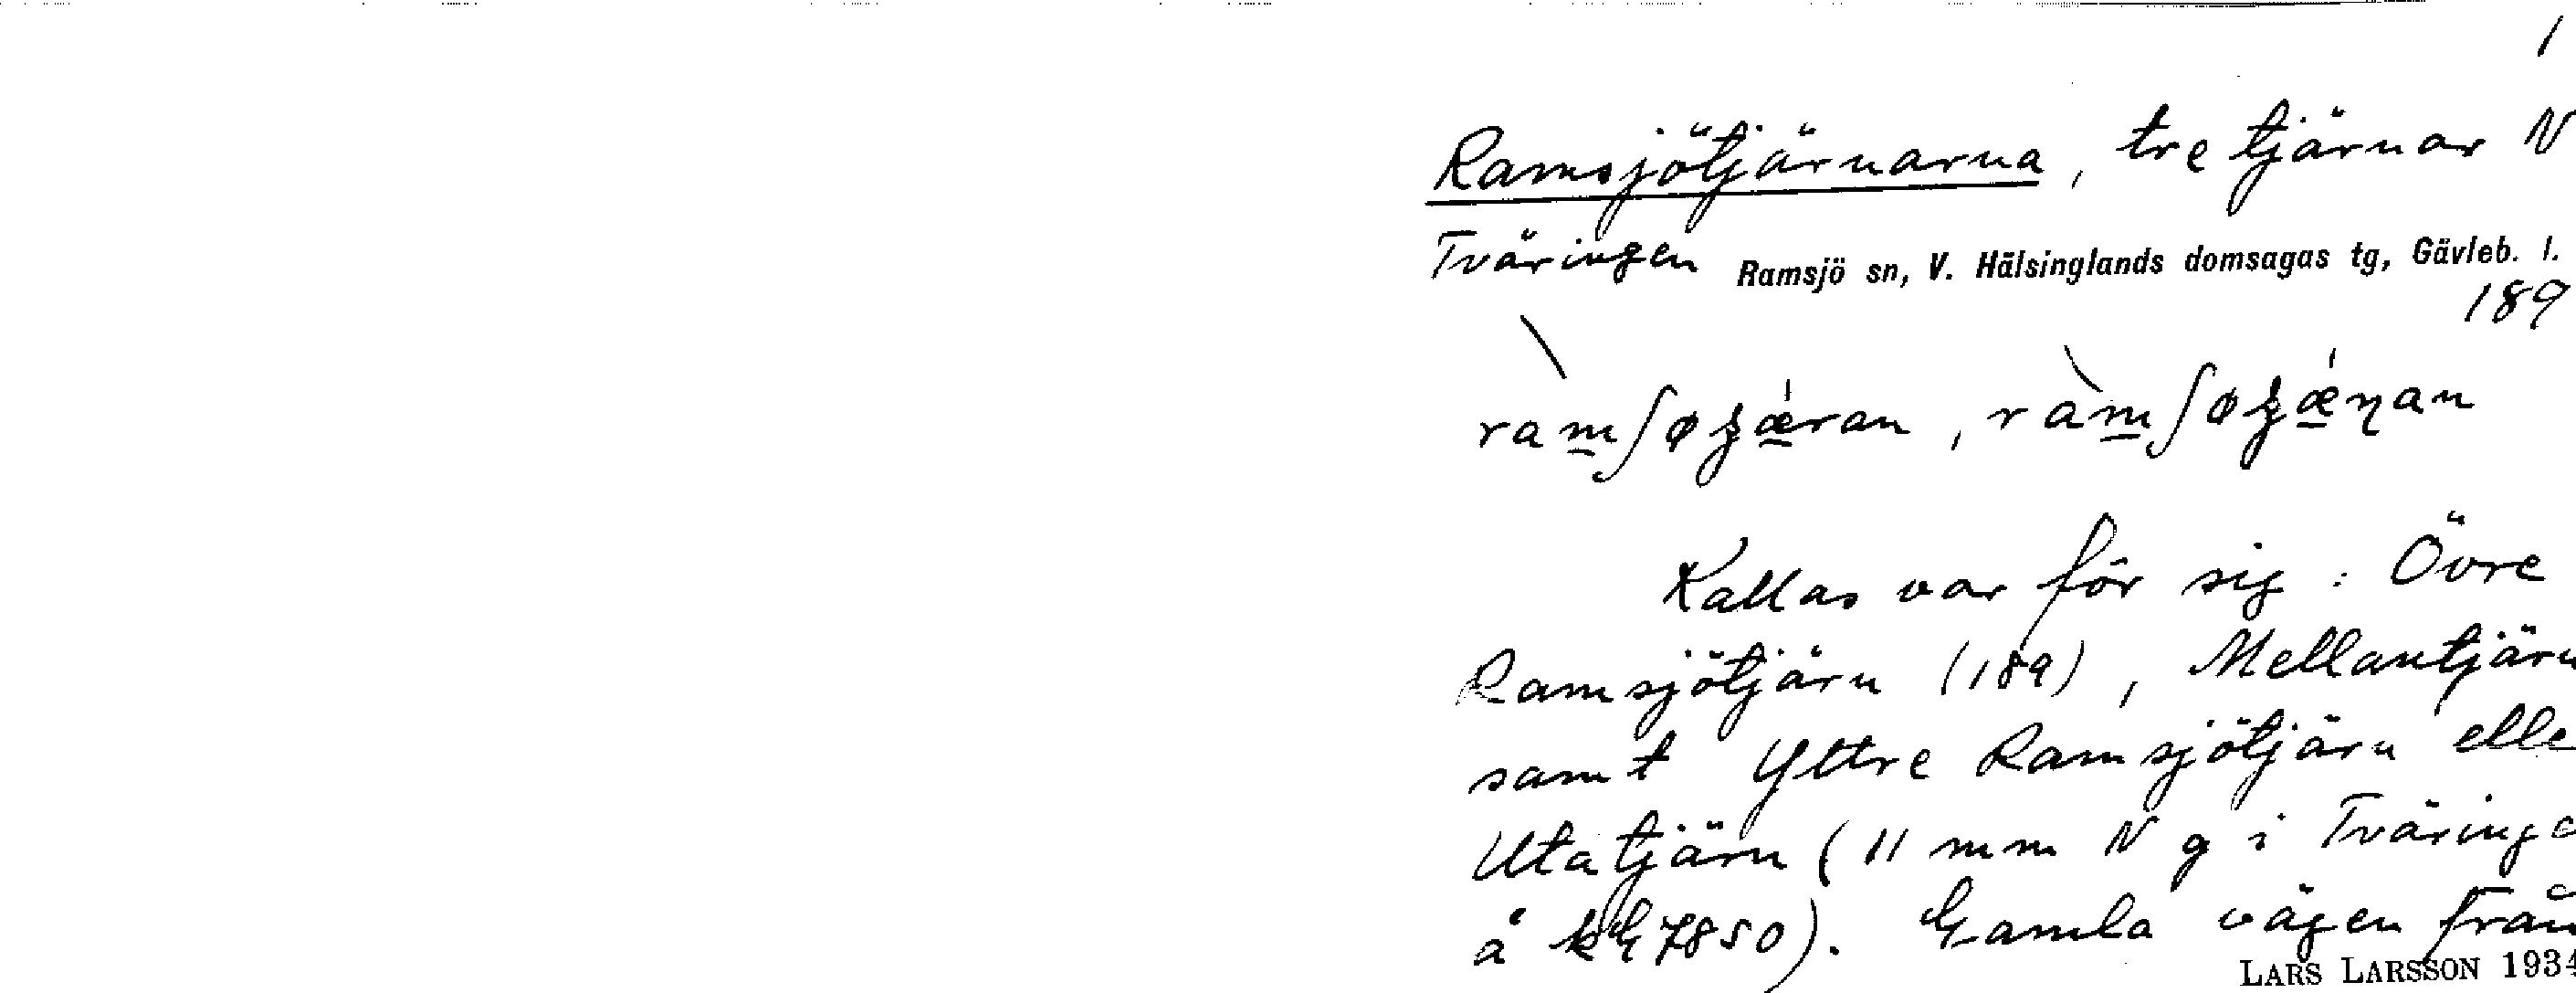 1
Ramsjötjärnarna, tre tjärnar N
Tväringen Ramsjö sn, V. Hälsinglands domsagas tg, Gävleb. l.
189
Kallas var för sig: Övre
Ramsjötjärn (189), Mellantjärn
samt Yttre Ramsjötjärn elle
Utatjärn (11 mm N g i Tväringe
å kbl 7850). Gamla vägen från
LARS LARSSON 1934